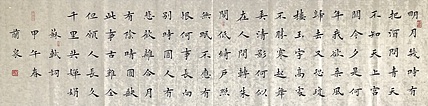 明月幾時有
把酒問青天
不知天上宮
闕今夕是何
年我欲乘風
歸去又恐瓊
樓玉宇高處
不勝寒起舞
弄清影何似
在人間轉朱
閣低綺戶照
無眠不應有
恨何事長向
別時圓人有
悲歡離合月
有陰晴圓缺
此事古難全
但願人長久
千里共嬋娟
蘇軾詞
甲午春